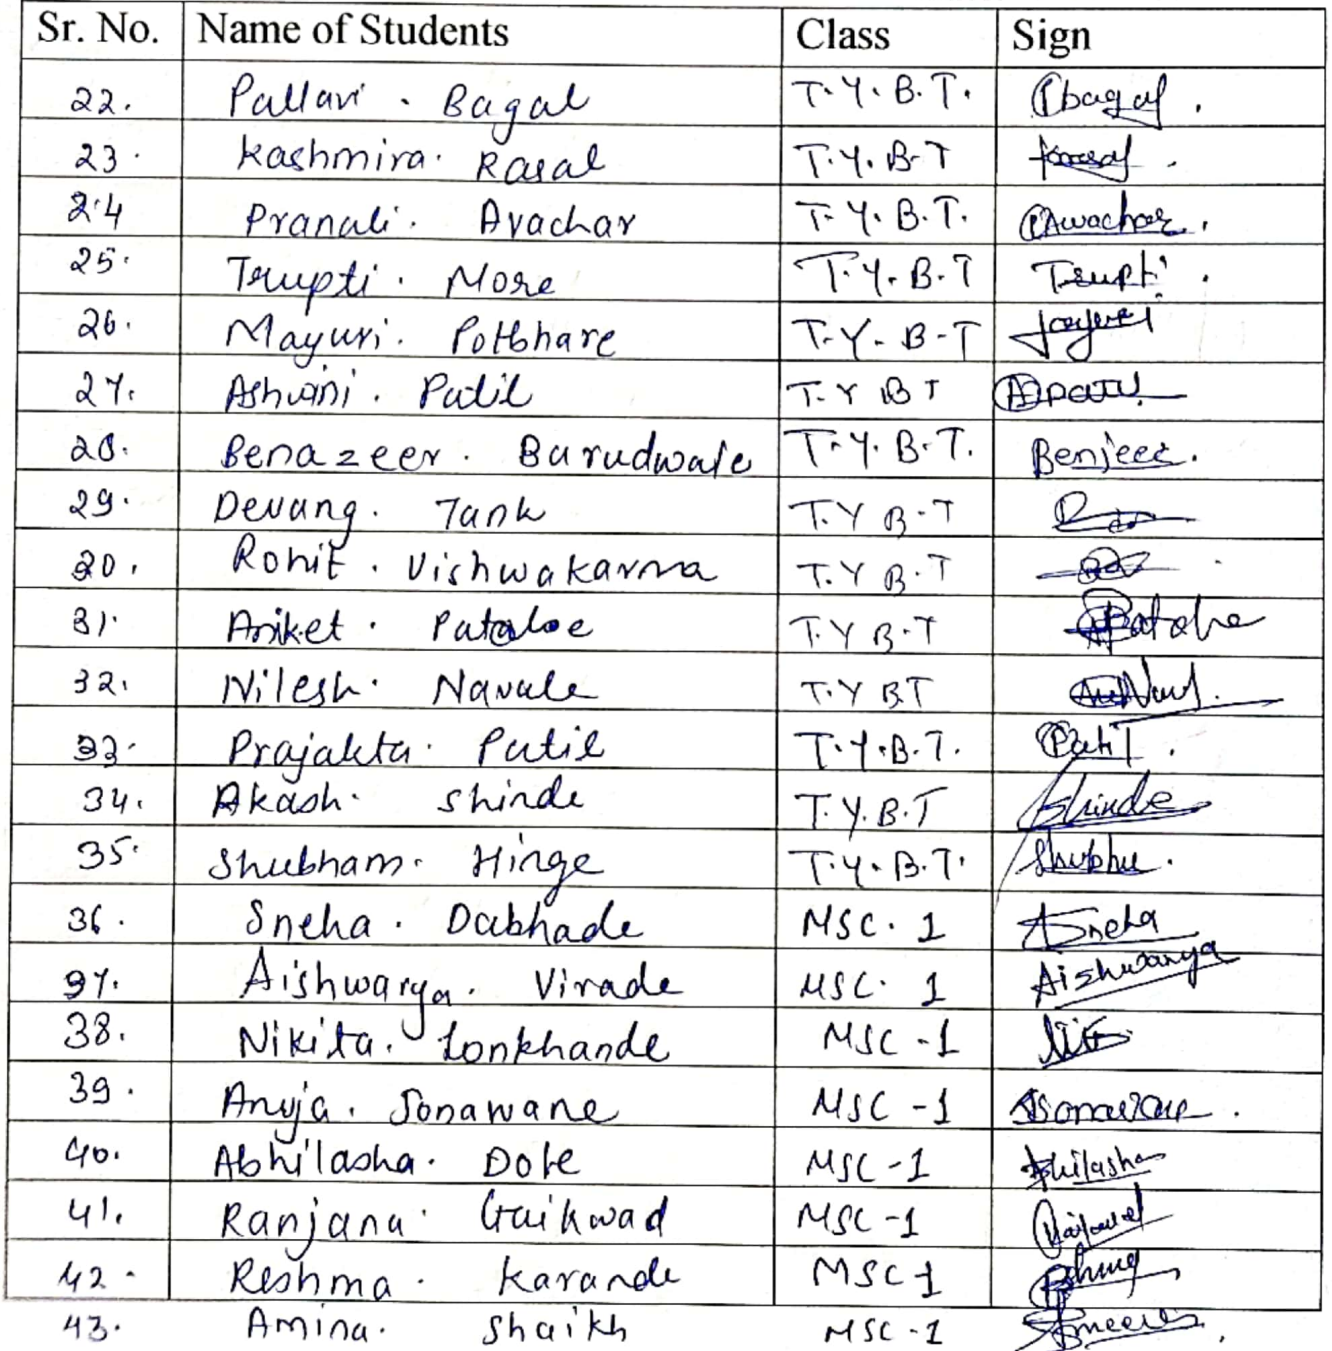 Sr. No. Name of Students Class Sign
22. Pallavi . Bagal T.Y.B.T. Pbagal.
23. Kashmira. Rasal T.Y.B.T
24 Pranali. Avachar T.Y.B.T. PAwachar.
25. Trupti. More T.Y.B.T Trupti.
26. Mayuri. Potbhare T.Y.B-T
27. Ashvini. Patil T.Y BT APatil
28. Benazeer. Barudwale T.Y.B.T. Benjeer.
29. Devang. Tank T.Y B.T
30. Rohit. Vishwakarma T.Y B.T
31. Aniket. Patole T.Y B.T
32. Nilesh. Navale T.Y BT
33. Prajakta. Patil T.Y.B.T. Patil.
34. Akash. Shinde T.Y.B.T Shinde
35. Shubham. Hinge T.Y.B.T. Shubhu.
36. Sneha. Dabhade MSC. 1 Sneha
37. Aishwarya. Virade MSC. 1 Aishwarya
38. Nikita. Lonkhande MSC -1
39. Anuja. Sonawane MSC -1 ASonawane.
40. Abhilasha. Dole MSC -1 Abhilasha
41. Ranjana. Gaikwad MSC -1
42. Reshma. Karande MSC 1
43. Amina. Shaikh MSC -1